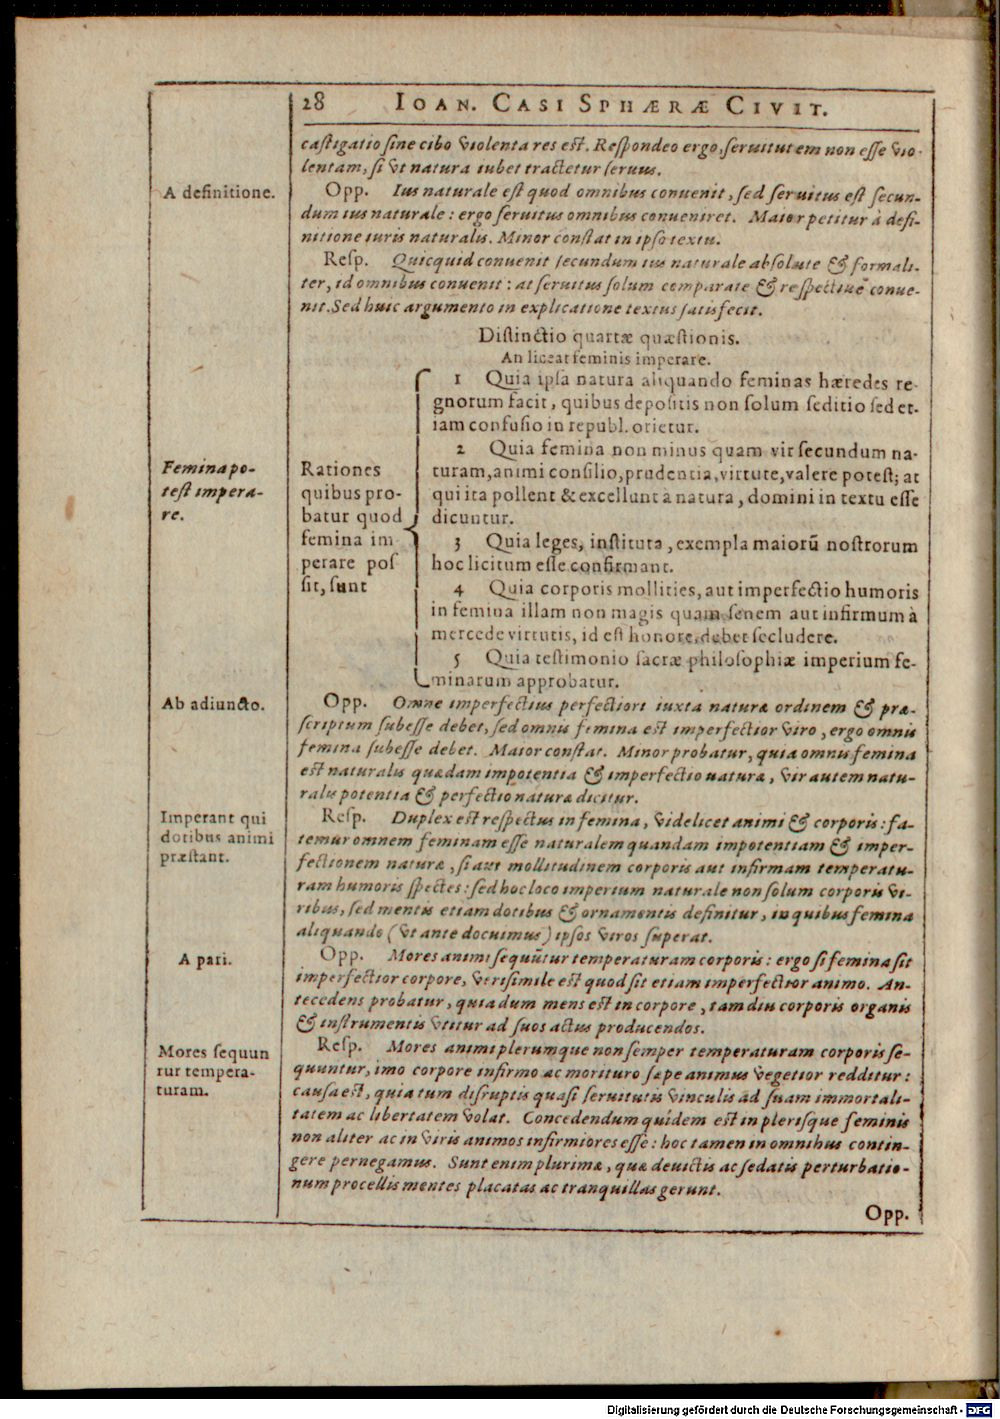 28 IOAN. CASI SPHÆRÆ CIVIT.
castigatio sine cibo violenta res est. Respondeo ergo, seruitutem non esse vio-
lentam, si vt natura iubet tractetur seruus.
A definitione.
Opp. Ius naturale est quod omnibus conuenit, sed seruitus est secun-
dum ius naturale: ergo seruitus omnibus conueniret. Maior petitur à defi-
nitione iuris naturalis. Minor constat in ipso textu.
Resp. Quicquid conuenit secundum ius naturale absolute & formali-
ter, id omnibus conuenit: at seruitus solum comparate & respectiuè conue-
nit. Sed huic argumento in explicatione textus satisfecit.
Distinctio quartæ quæstionis.
An liceat feminis imperare.
Femina po-
test impera-
re.
Rationes
quibus pro-
batur quod
femina im-
perare pos
sit, sunt
1 Quia ipsa natura aliquando feminas hæredes re-
gnorum facit, quibus depositis non solum seditio sed et-
iam confusio in republ. orietur.
2 Quia femina non minus quam vir secundum na-
turam, animi consilio, prudentia, virtute, valere potest; at
qui ita pollent & excellunt à natura, domini in textu esse
dicuntur.
3 Quia leges, instituta, exempla maiorū nostrorum
hoc licitum esse confirmant.
4 Quia corporis mollities, aut imperfectio humoris
in femina illam non magis quam senem aut infirmum à
mercede virtutis, id est honore, debet secludere.
5 Quia testimonio sacræ philosophiæ imperium fe-
minarum approbatur.
Ab adiuncto.
Opp. Omne imperfectius perfectiori iuxta naturæ ordinem & præ-
scriptum subesse debet, sed omnis femina est imperfectior viro, ergo omnis
femina subesse debet. Maior constat. Minor probatur, quia omnis femina
est naturalis quædam impotentia & imperfectio naturæ, vir autem natu-
ralis potentia & perfectio naturæ dicitur.
Imperant qui
dotibus animi
præstant.
Resp. Duplex est respectus in femina, videlicet animi & corporis: fa-
temur omnem feminam esse naturalem quandam impotentiam & imper-
fectionem naturæ, si aut mollitudinem corporis aut infirmam temperatu-
ram humoris spectes: sed hoc loco imperium naturale non solum corporis vi-
ribus, sed mentis etiam dotibus & ornamentis definitur, in quibus femina
aliquando (vt ante docuimus) ipsos viros superat.
A pari.
Opp. Mores animi sequūtur temperaturam corporis: ergo si femina sit
imperfectior corpore, verisimile est quod sit etiam imperfectior animo. An-
tecedens probatur, quia dum mens est in corpore, tam diu corporis organis
& instrumentis vtitur ad suos actus producendos.
Mores sequun
tur tempera-
turam.
Resp. Mores animi plerumque non semper temperaturam corporis se-
quuntur, imo corpore infirmo ac morituro sæpe animus vegetior redditur:
causa est, quia tum disruptis quasi seruitutis vinculis ad suam immortali-
tatem ac libertatem volat. Concedendum quidem est in plerisque feminis
non aliter ac in viris animos infirmiores esse: hoc tamen in omnibus contin-
gere pernegamus. Sunt enim plurimæ, quæ deuictis ac sedatis perturbatio-
num procellis mentes placatas ac tranquillas gerunt.
Opp.
Digitalisierung gefördert durch die Deutsche Forschungsgemeinschaft - DFG